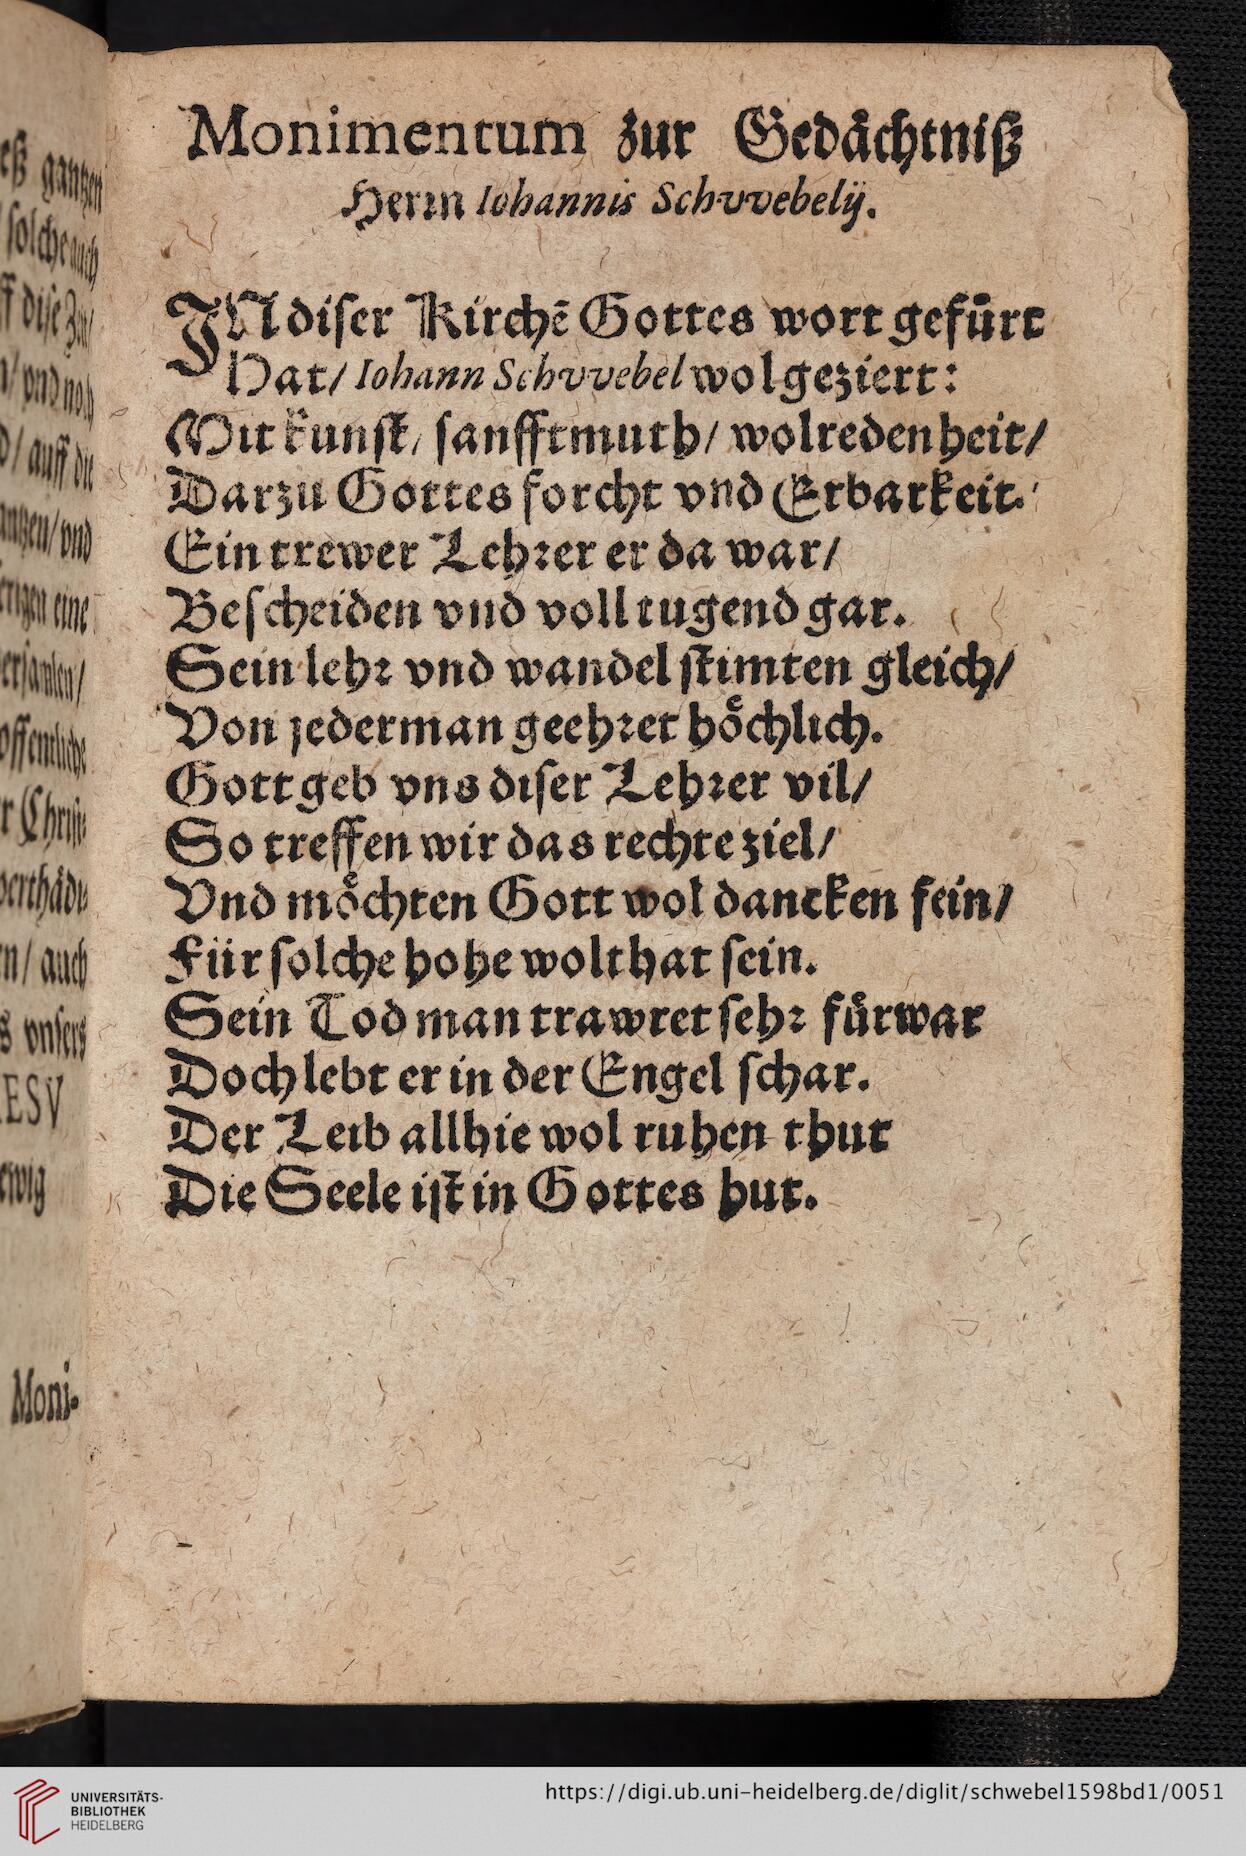 Monimentum zur Gedåchtniß
Herrn Iohannis Schvvebelij.
IN diser Kirchē Gottes wort gefůrt
Hat/ Iohann Schvvebel wol geziert:
Mit kunst/ sanfftmuth/ wolredenheit/
Darzu Gottes forcht vnd Erbarkeit.
Ein trewer Lehrer er da war/
Bescheiden vnd voll tugend gar.
Sein lehr vnd wandel stimten gleich/
Von jederman geehret hoͤchlich.
Gott geb vns diser Lehrer vil/
So treffen wir das rechte ziel/
Vnd moͤchten Gott wol dancken fein/
Für solche hohe wolthat sein.
Sein Tod man trawret sehr fůrwar
Doch lebt er in der Engel schar.
Der Leib allhie wol ruhen thut
Die Seele ist in Gottes hut.
gantzen
solche auch
dise
vnd noch
/ auff die
/ vnd
eine
offentliche
/ auch
vnsers
ewig
Moni-
UNIVERSITÄTS-
BIBLIOTHEK
HEIDELBERG
https://digi.ub.uni-heidelberg.de/diglit/schwebel1598bd1/0051